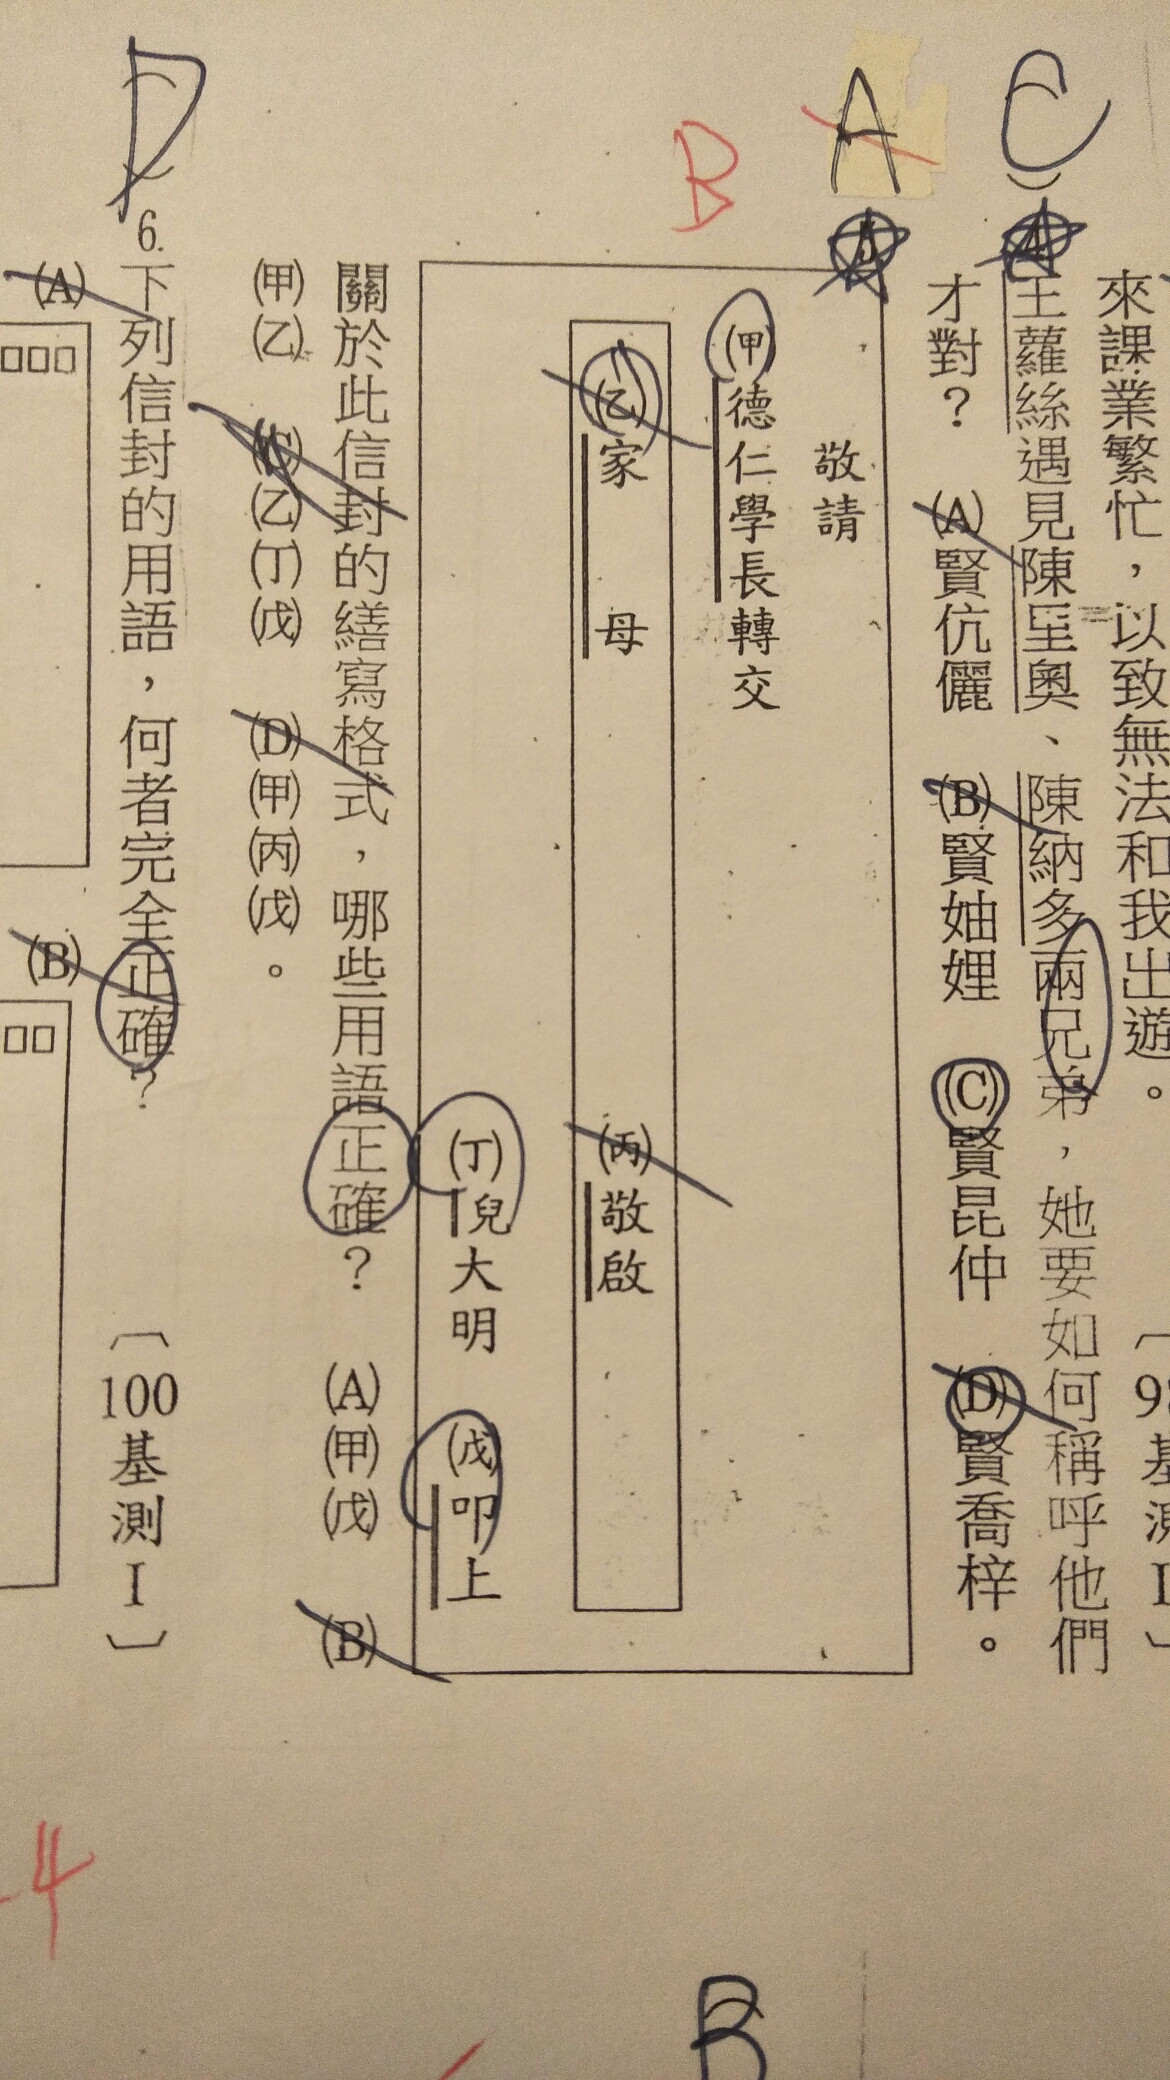 來課業繁忙，以致無法和我出遊。
王蘿絲遇見陳里奧、陳納多兩兄弟，她要如何稱呼他們
才對？ (A)賢伉儷 (B)賢妯娌 (C)賢昆仲 (D)賢喬梓。
〔98基測I〕
C
A
B
敬請
(甲)德仁學長轉交
(乙)家 母 (丙)敬啟
(丁)兒大明 (戊)叩上
關於此信封的繕寫格式，哪些用語正確？ (A)(甲)(戊) (B)
(甲)(乙) (C)(乙)(丁)(戊) (D)(甲)(丙)(戊)。
D
6.下列信封的用語，何者完全正確？ 〔100基測I〕
(A)
□□□
(B)
□□
-4
B